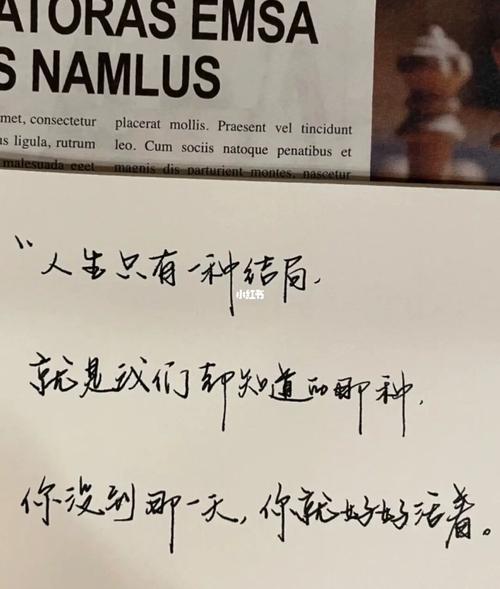 ATORAS EMSA
S NAMLUS
met, consectetur
us ligula, rutrum
malesuada eget
placerat mollis. Praesent vel tincidunt
leo. Cum sociis natoque penatibus et
magnis dis parturient montes, nascetur
"人生只有一种结局,
小红书
就是我们都知道的那种,
你没到那一天,你就好好活着。